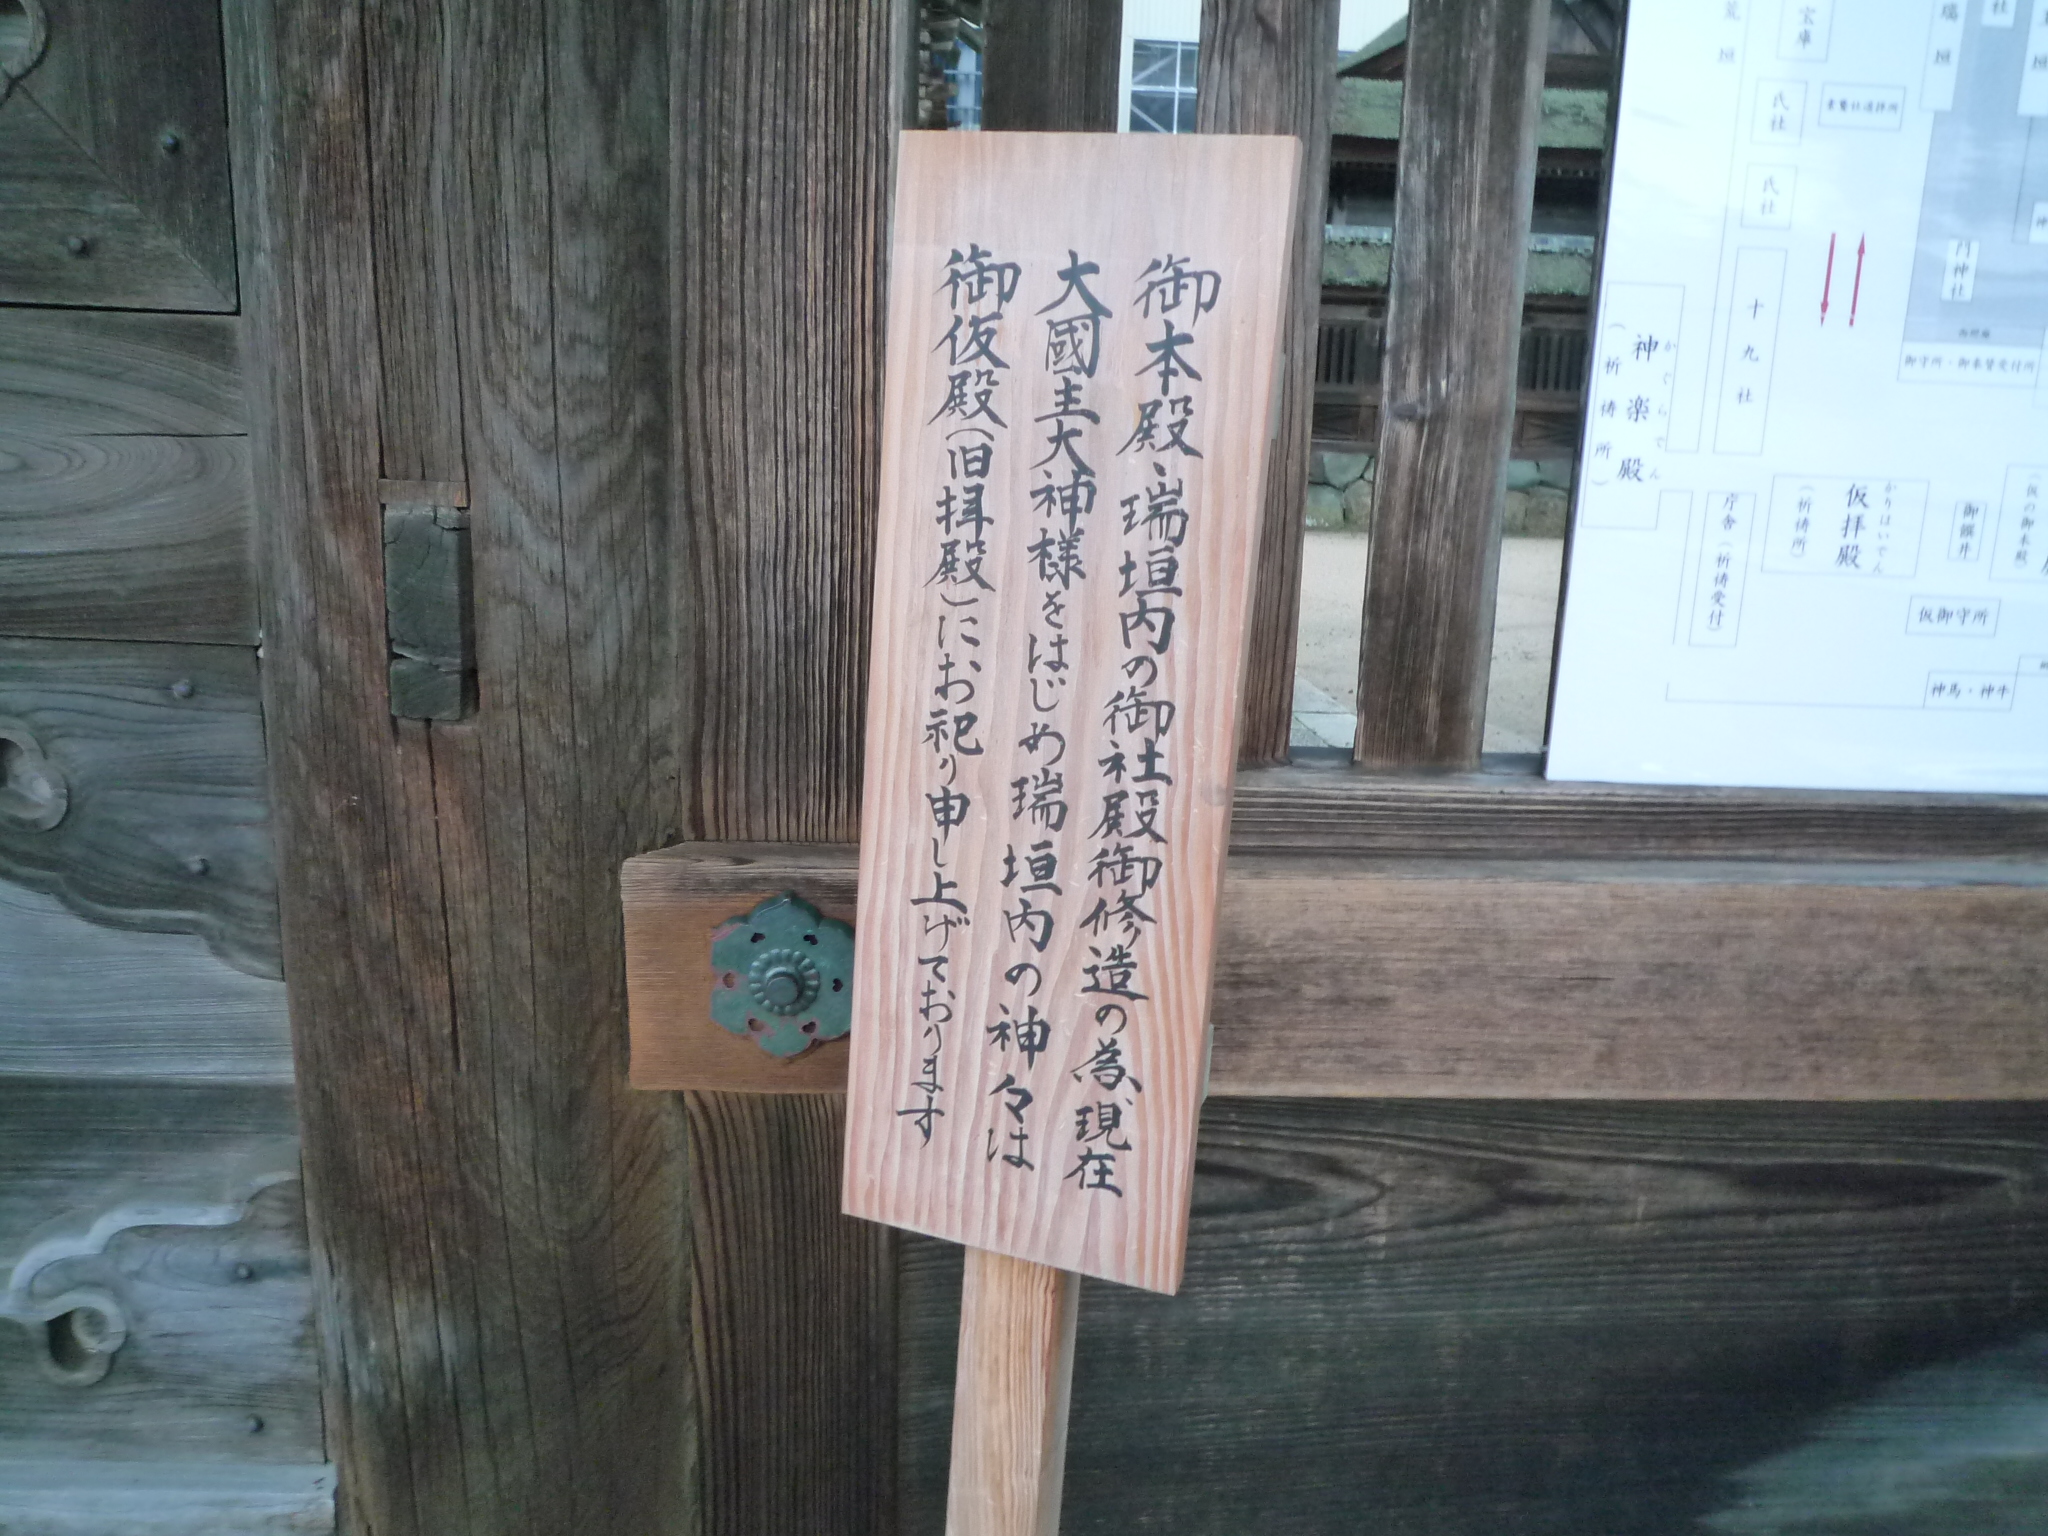 御本殿、瑞垣内の御社殿御修造の為、現在
大國主大神様をはじめ瑞垣内の神々は
御仮殿（旧拝殿）にお祀り申し上げております
荒垣
宝庫
瑞垣
社
氏社
素鵞社遥拝所
氏社
門神社
十九社
御守所・御本殿受付所
神楽殿
かぐらでん
（祈祷所）
庁舎（祈祷受付）
仮拝殿
かりはいでん
（祈祷所）
御饌井
（仮の御本殿）
仮御守所
神馬・神牛